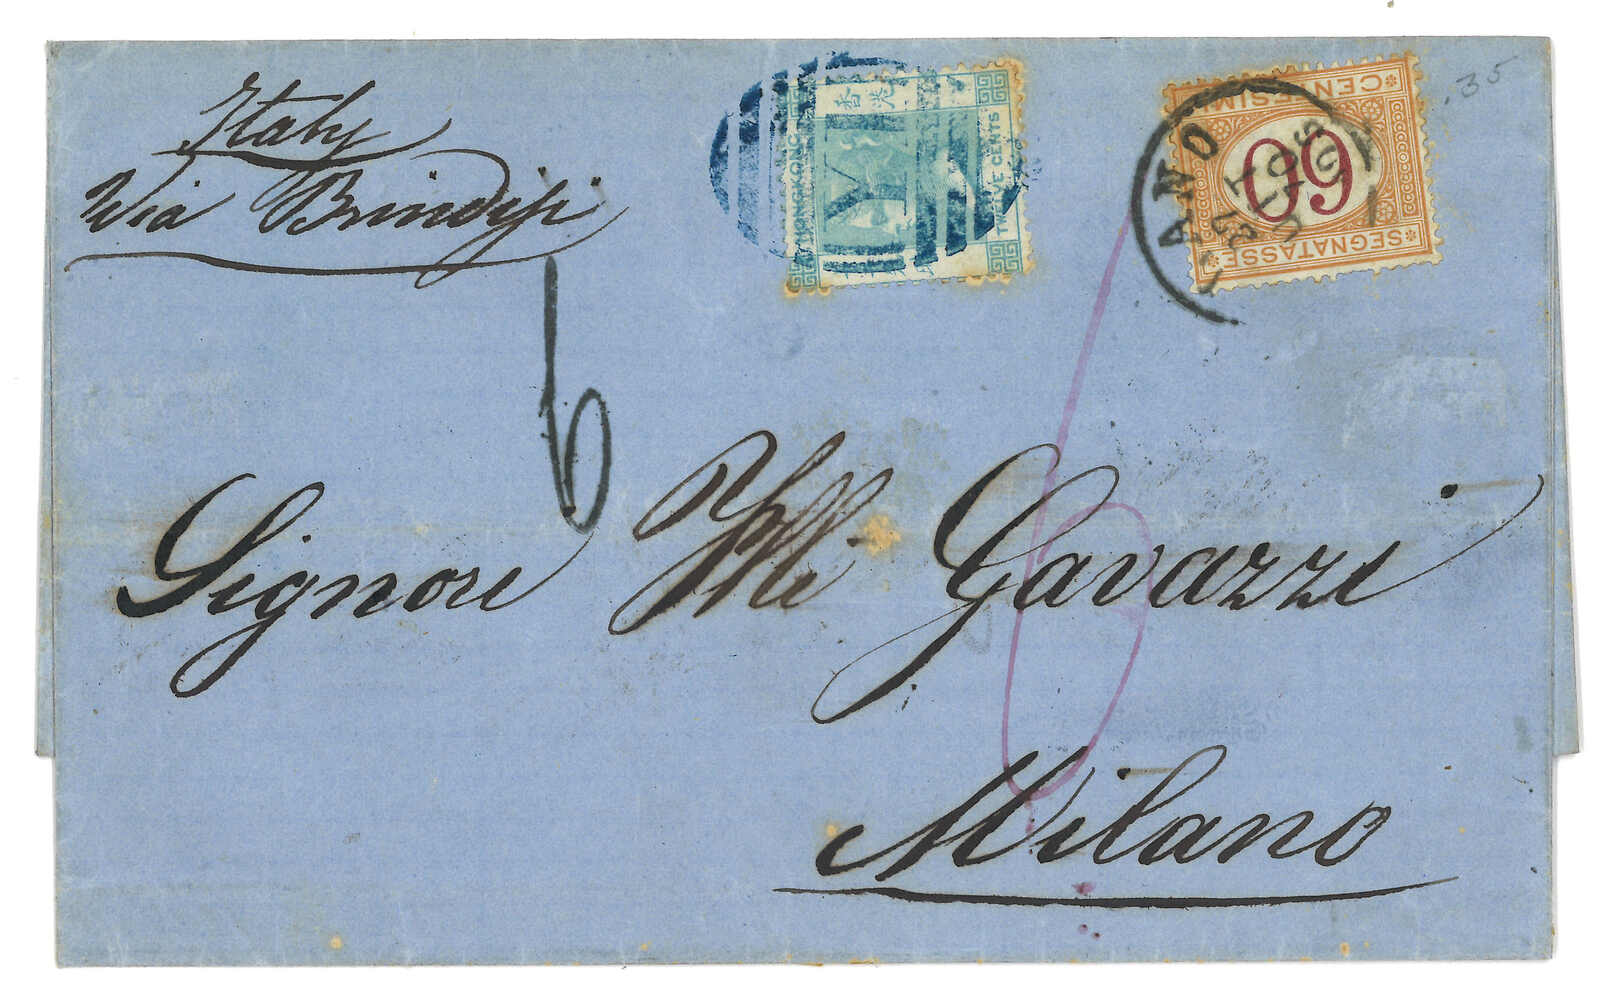 Italy
Via Brindisi
香港
HONGKONG
TWELVE CENTS
Y1
CENTESIMI
60
SEGNATASSE
.35
6
6
Signori Flli Gavazzi
Milano